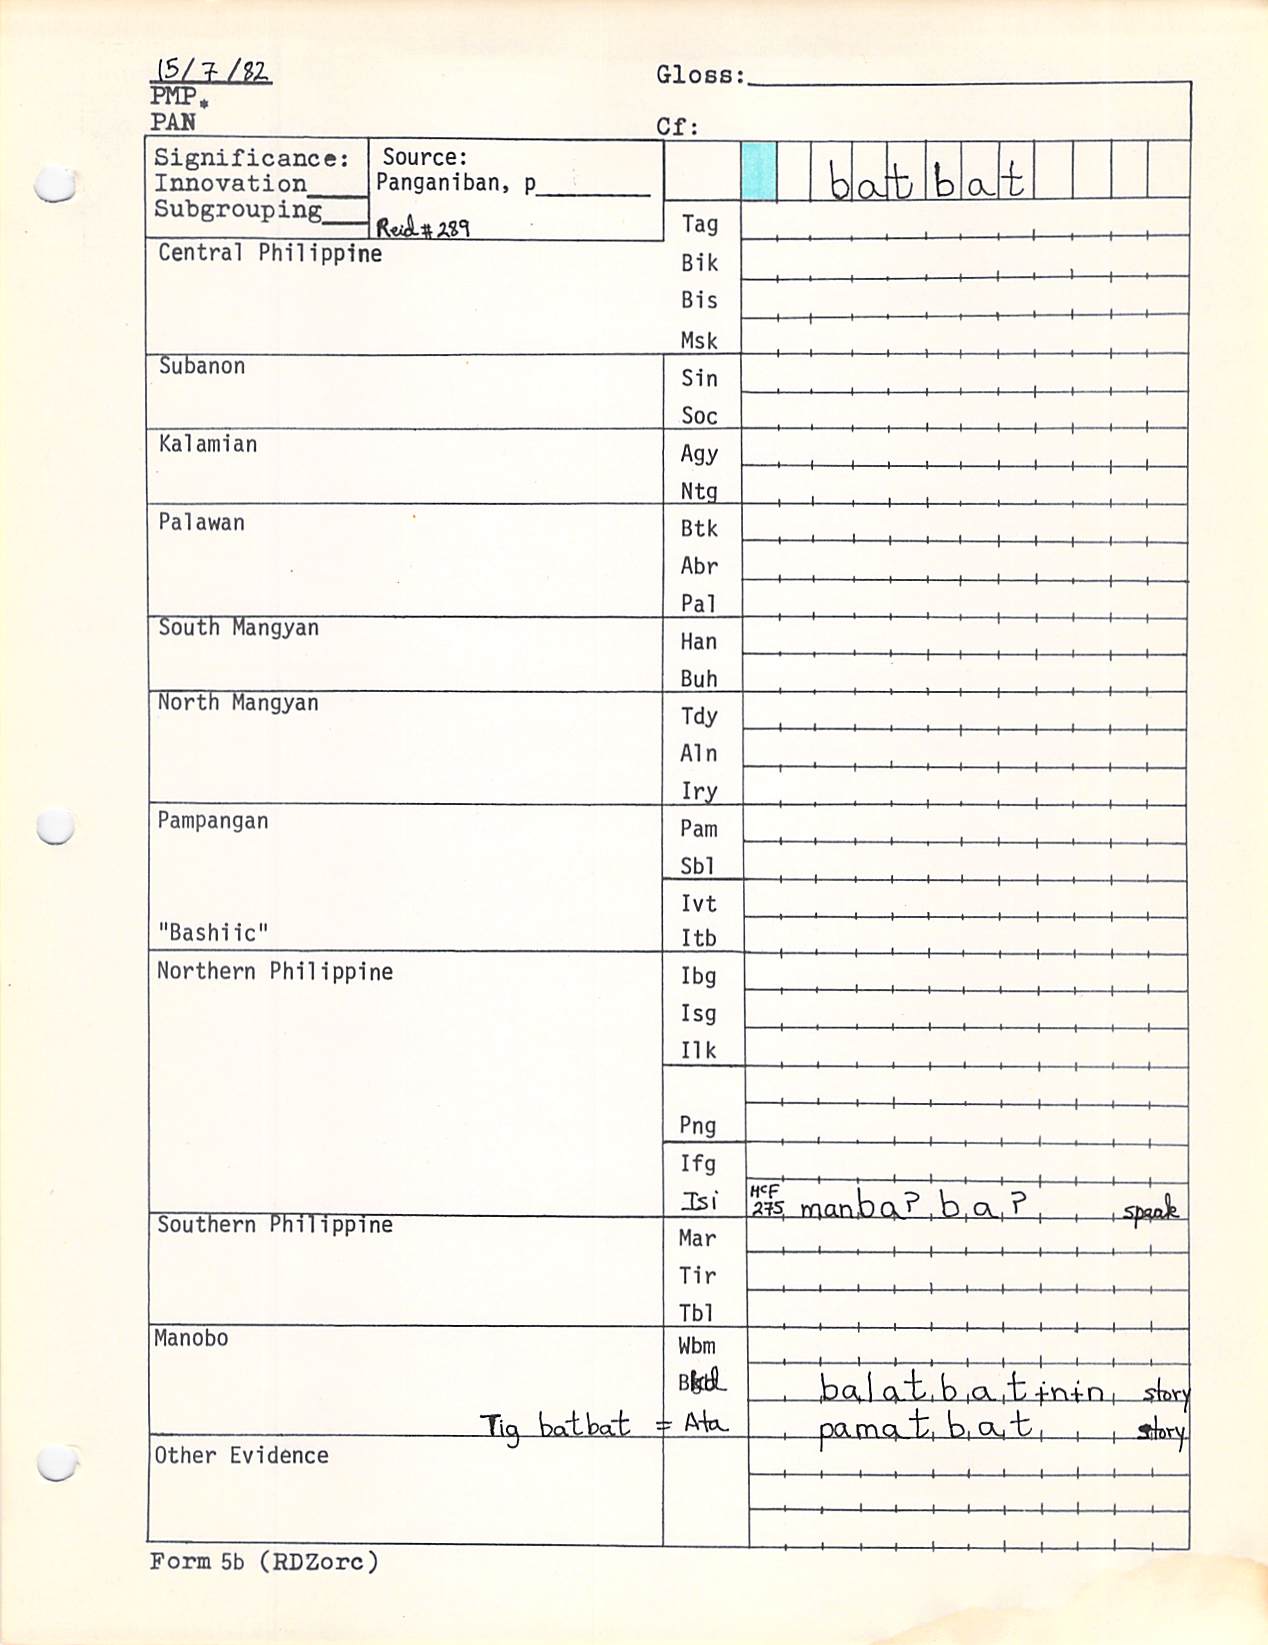 15/7/82
Gloss:
PMP*
PAN
Cf:
Significance:
Innovation
Subgrouping
Source:
Panganiban, p
Reid # 289
batbat
Tag
Central Philippine
Bik
Bis
Msk
Subanon
Sin
Soc
Kalamian
Agy
Ntg
Palawan
Btk
Abr
Pal
South Mangyan
Han
Buh
North Mangyan
Tdy
Aln
Iry
Pampangan
Pam
Sbl
Ivt
"Bashiic"
Itb
Northern Philippine
Ibg
Isg
Ilk
Png
Ifg
Isi HCF 275 manba?ba? speak
Southern Philippine
Mar
Tir
Tbl
Manobo
Wbm
Bkd balatbatɨnɨn story
Tig batbat = Ata pamatbat story
Other Evidence
Form 5b (RDZorc)